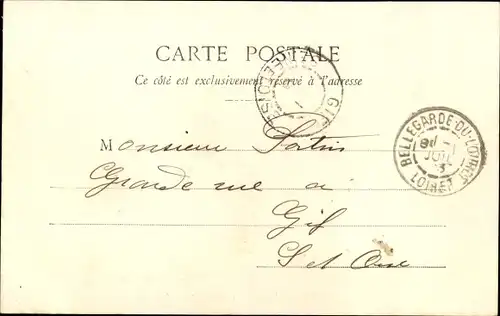 CARTE POSTALE
Ce côté est exclusivement réservé à l'adresse
GIF
BELLEGARDE-DU-LOIRET
JUIL
LOIRET
Monsieur
Grande rue à
Gif
S et Oise